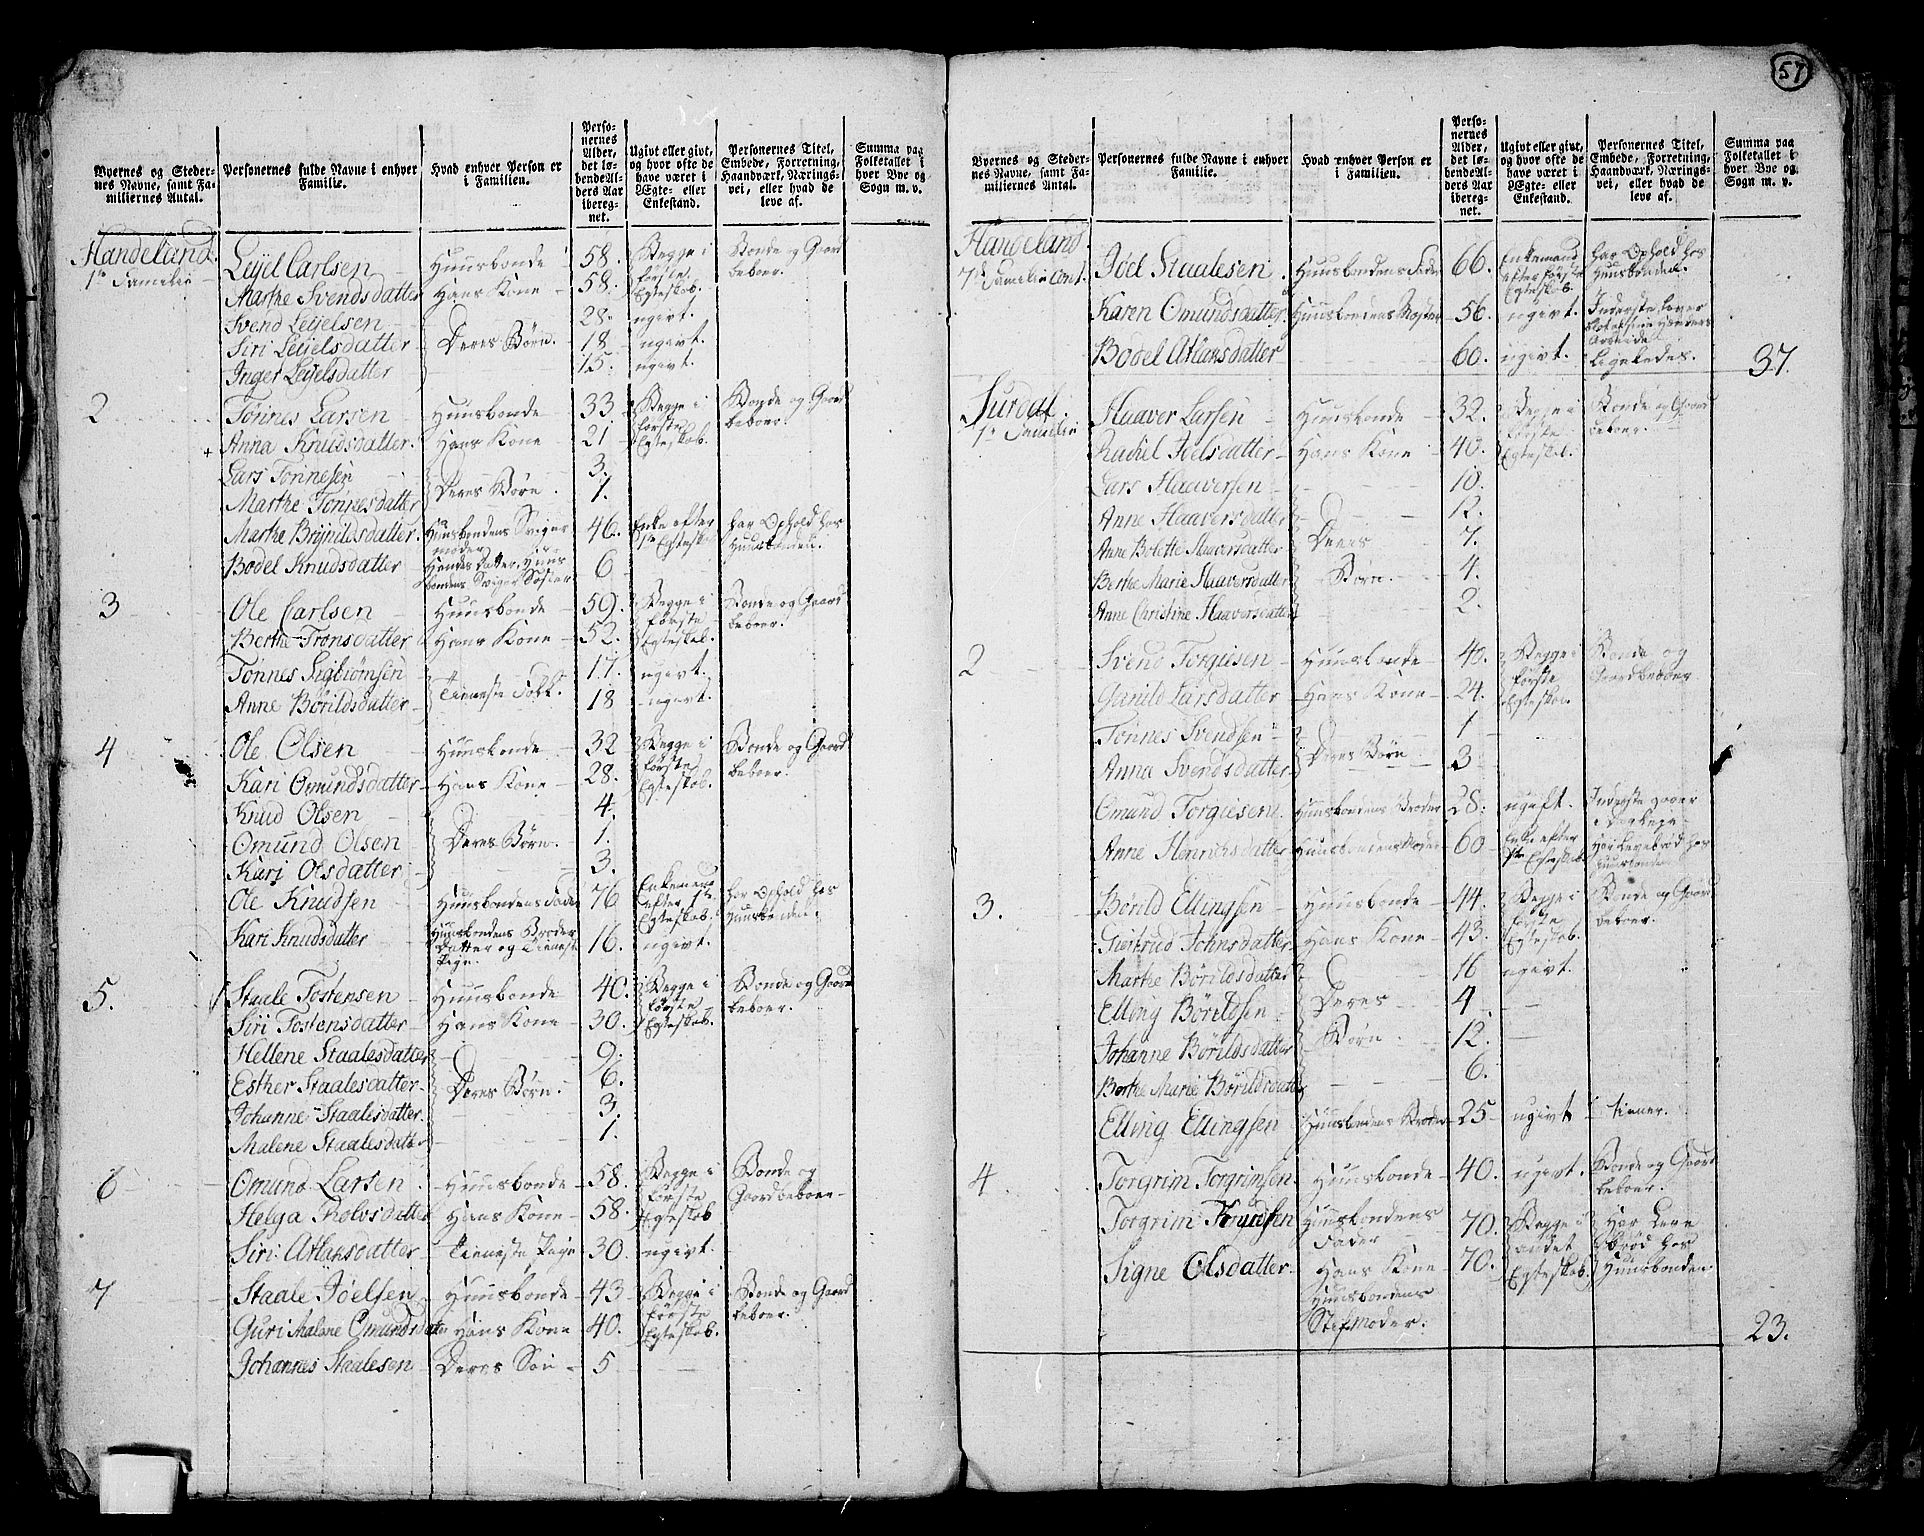 57
Byernes og Steder-
nes Navne, samt Fa-
miliernes Antal.
Personernes fulde Navne i enhver
Familie.
Hvad enhver Person er
i Familien.
Perso-
nernes
Alder,
det lø-
bende Al-
ders Aar
iberegnet.
Ugivt eller givt,
og hvor ofte de
have været i
Ægte- eller
Enkestand.
Personernes Titel,
Embede, Forretning,
Haandværk, Nærings-
vei, eller hvad de
leve af.
Summa paa
Folketallet i
hver Bye og
Sogn m. v.
Handeland.
1te Familie
Leijel Carlsen Huusbonde 58. Begge i første Egteskab. Bonde og Gaard beboer.
Marthe Svendsdatter Hans Kone 58.
Svend Leijelsen 28. ugivt.
Siri Leijelsdatter Deres Børn. 18 ugivt.
Inger Leijelsdatter 15. ugivt.
2 Tønnes Larsen Huusbonde 33 Begge i første Egteskab. Bonde og Gaard beboer.
+ Anna Knudsdatter. Hans Kone 21
Lars Tønnesen Deres Børn. 3.
Marthe Tønnesdatter 1.
Marthe Brynildsdatter. Huusbondens Sviger moder 46. Enke efter 1te Egteskab har Ophold hos Huusbonden.
Bodel Knudsdatter Hendes Datter, Huus bondens Sviger Søster 6
3 Ole Carlsen Huusbonde 59. Begge i første Egteskab. Bonde og Gaard beboer.
Berthe Tronsdatter Hans Kone 52.
Tønnes Sigbiørnsen Tieneste Folk. 17. ugivt.
Anne Børildsdatter 18 ugivt.
4 Ole Olsen Huusbonde 32 Begge i første Egteskab. Bonde og Gaard beboer.
Kari Omundsdatter Hans Kone 28.
Knud Olsen 4.
Omund Olsen Deres Børn. 1.
Kari Olsdatter 3.
Ole Knudsen Huusbondens Fader 76 Enkemand efter 1te Egteskab. har Ophold hos Huusbonden.
Kari Knudsdatter Huusbondens Broder Datter og Tieneste Pige. 16. ugivt.
5. Staale Tostensen Huusbonde 40. Begge i første Egteskab. Bonde og Gaard beboer.
Siri Tostensdatter Hans Kone 30.
Hellene Staalesdatter 9.
Esther Staalesdatter Deres Børn. 6.
Johanne Staalesdatter. 3.
Malene Staalesdatter 1.
6 Omund Larsen Huusbonde 58. Begge i første Egteskab Bonde og Gaardbeboer
Helga Tholvsdatter Hans Kone 58.
Siri Atlansdatter Tieneste Pige 30. ugivt.
7 Staale Joelsen Huusbonde 43 Begge i første Egteskab. Bonde og Gaard beboer.
Guri Malene Omundsdatter Hans Kone 40.
Johannes Staalesen Deres Søn 5
Byernes og Steder-
nes Navne, samt Fa-
miliernes Antal.
Personernes fulde Navne i enhver
Familie.
Hvad enhver Person er
i Familien.
Perso-
nernes
Alder,
det lø-
bende Al-
ders Aar
iberegnet.
Ugivt eller givt,
og hvor ofte de
have været i
Ægte- eller
Enkestand.
Personernes Titel,
Embede, Forretning,
Haandværk, Nærings-
vei, eller hvad de
leve af.
Summa paa
Folketallet i
hver Bye og
Sogn m. v.
Handeland
7de Familie cont.
Joel Staalesen Huusbondens Fader 66. Enkemand efter første Egteskab har Ophold hos Huusbonden.
Karen Omundsdatter. Huusbondens Moster 56. ugivt. Inderste, lever
Bodel Atlansdatter 60. ugivt. Ligeledes. 37.
Surdal.
1te Familie
Haaver Larsen Huusbonde 32. Begge i første Egteskab. Bonde og Gaard beboer.
Rachel Joelsdatter Hans Kone 40.
Lars Haaversen 10.
Anne Haaversdatter 12.
Anne Bolette Haaversdatter Deres 7.
Berthe Marie Haaversdatter Børn. 4.
Anne Christine Haaversdatter 2.
2 Svend Torgiesen Huusbonde 40. Begge i første Egteskab. Bonde og Gaardbeboer
Gunild Larsdatter Hans Kone 24.
Tønnes Svendsen Deres Børn 1
Anna Svendsdatter 3
Omund Torgiesen. Huusbondens Broder 28. ugift. Inderste
Anne Henrichsdatter Huusbondens Moder 60 Enke efter 1te Egteskab har Levebrød hos Huusbonden
3. Børild Ellingsen Huusbonde 44. Begge i første Egteskab. Bonde og Gaard beboer.
Giertrud Johnsdatter Hans Kone 43.
Marthe Børildsdatter 16 ugivt.
Elling Børildsen Deres 4
Johanne Børildsdatter Børn 12.
Berthe Marie Børildsdatter 6.
Elling Ellingsen Huusbondens Broder 25 ugivt tiener.
4 Torgrim Torgrimsen Huusbonde 40. ugivt. Bonde og Gaard beboer.
Torgrim Huusbondens Fader 70. Begge i andet Egteskab. Har Leve Brød hos Huusbonden
Signe Olsdatter Hans Kone Huusbondens Stifmoder. 70.
23.